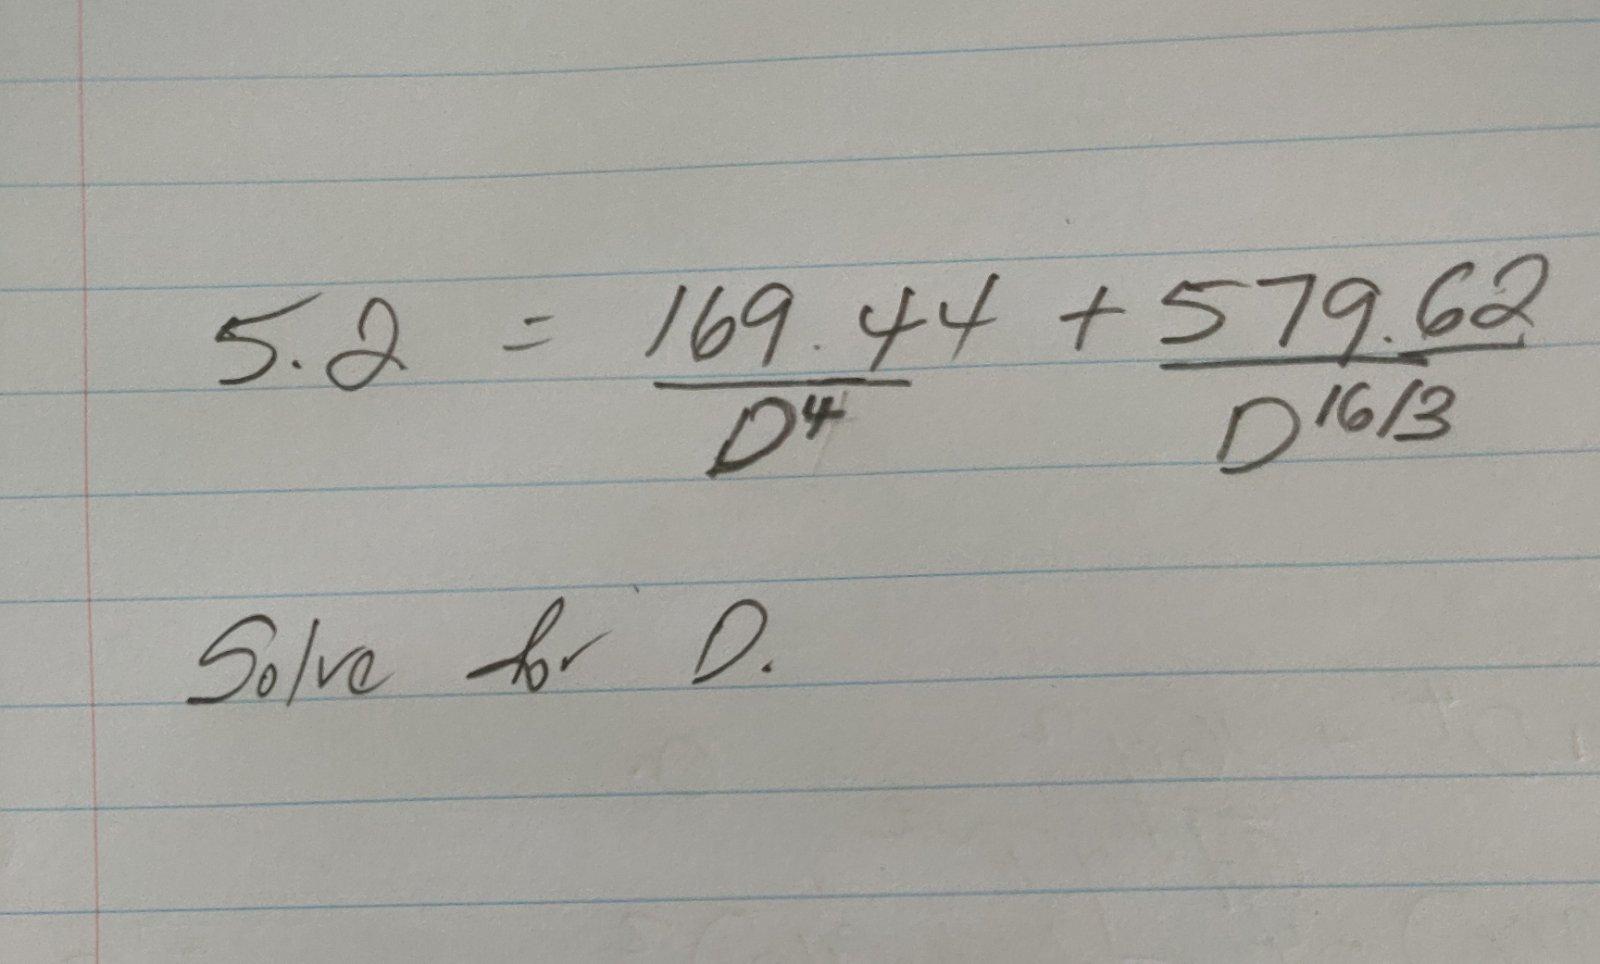 5.2 = 169.44/D⁴ + 579.62/D¹⁶/³
Solve for D.